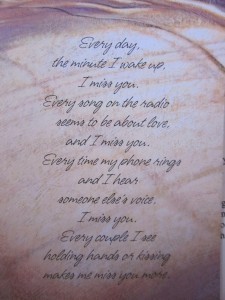 Every day,
the minute I wake up,
I miss you.
Every song on the radio
seems to be about love,
and I miss you.
Every time my phone rings
and I hear
someone else's voice,
I miss you.
Every couple I see
holding hands or kissing
makes me miss you more.